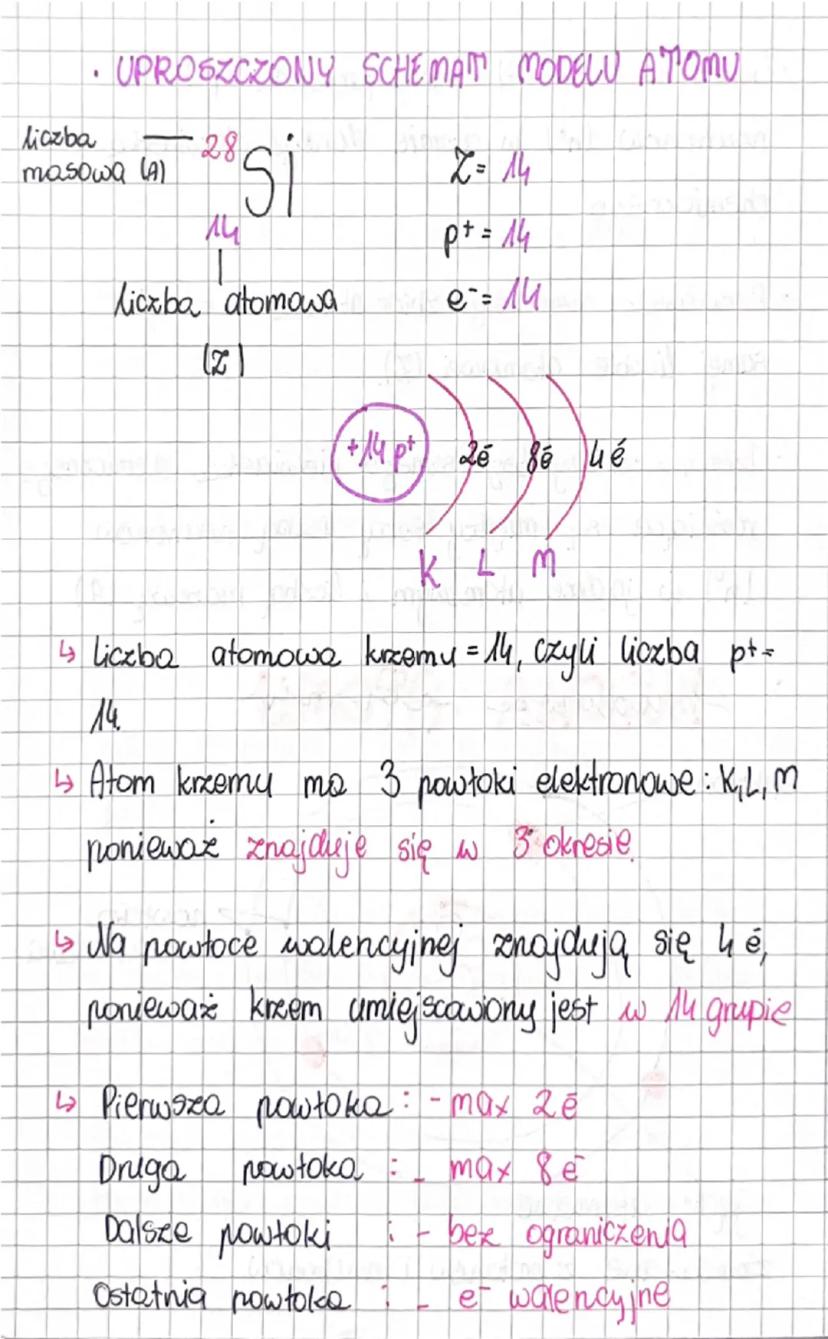 · UPROSZCZONY SCHEMAT MODELU ATOMU
liczba
masowa (A)
28
Si
14
liczba atomowa
(Z)
Z= 14
p+ = 14
e⁻= 14
+14 p+
2ē 8ē 4ē
K L M
↳ liczba atomowa krzemu = 14, czyli liczba p+=
14.
↳ Atom krzemu ma 3 powłoki elektronowe: K, L, M
ponieważ znajduje się w 3 okresie.
↳ Na powłoce walencyjnej znajdują się 4 ē,
ponieważ krzem umiejscowiony jest w 14 grupie
↳ Pierwsza powłoka : - max 2 ē
Druga powłoka : - max 8 ē
Dalsze powłoki : - bez ograniczenia
Ostatnia powłoka : - e⁻ walencyjne